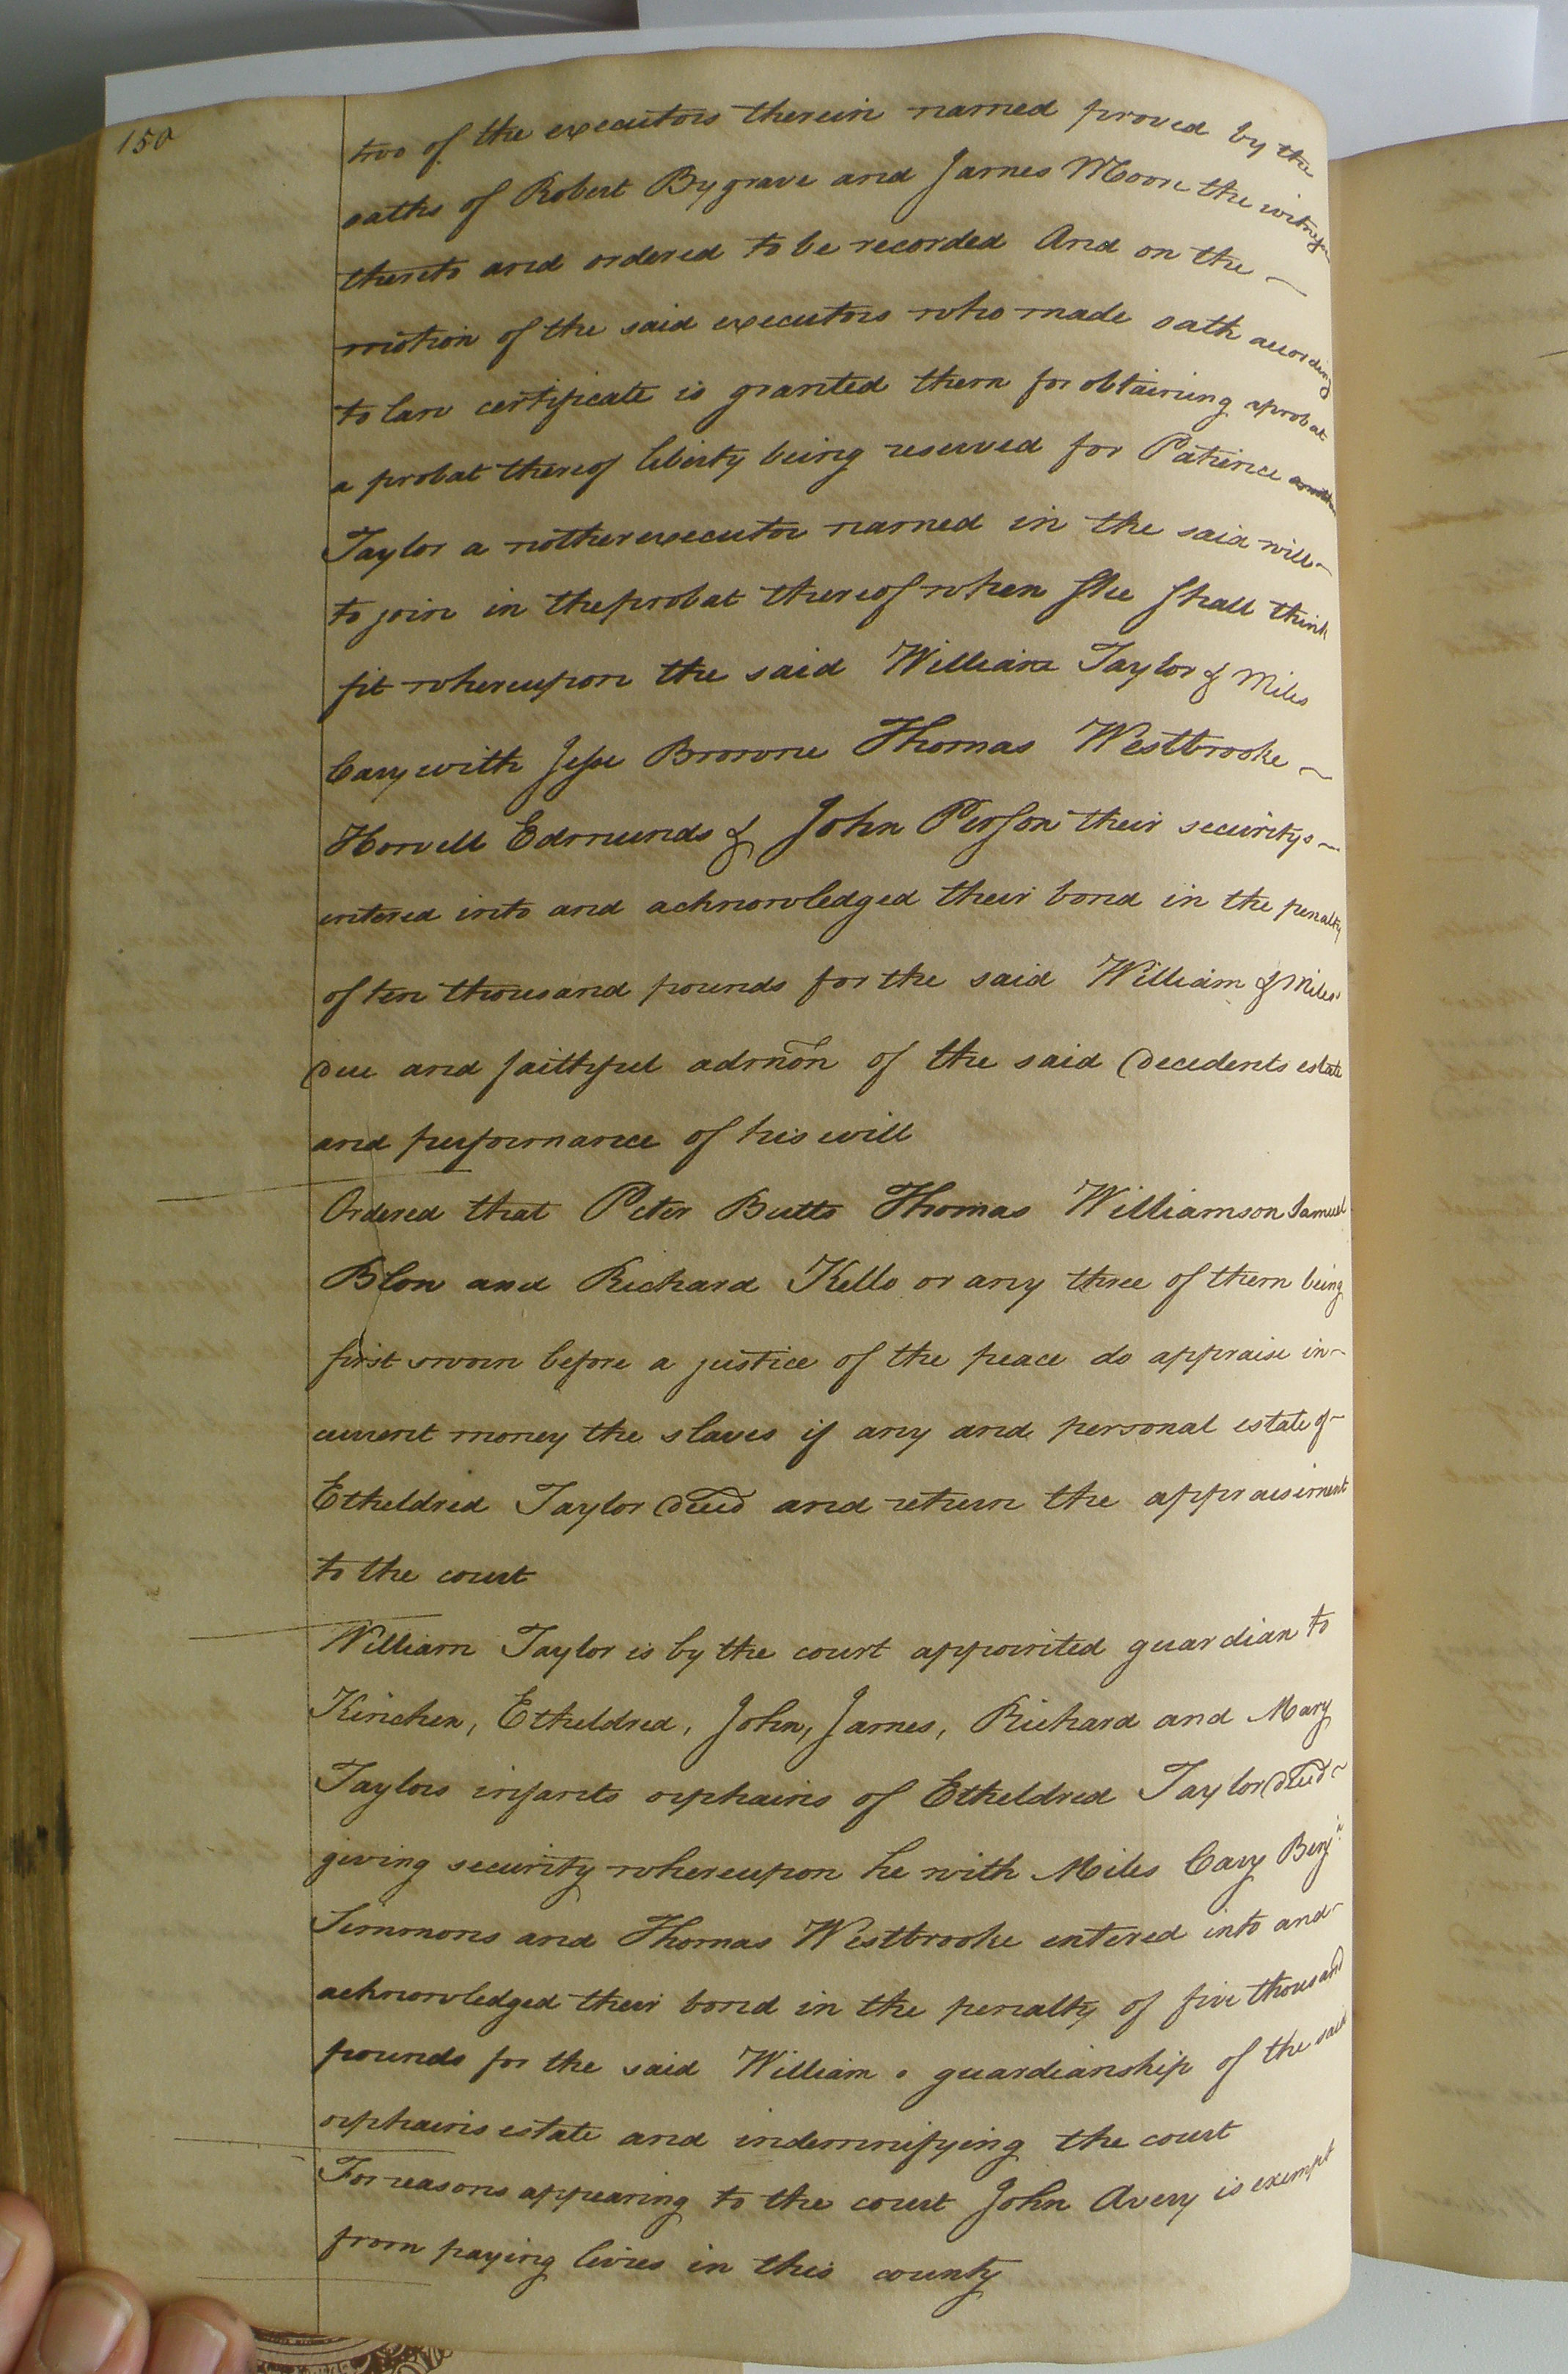 150
two of the executors therein named proved by the
oaths of Robert Bygrave and James Moore the witnesses
thereto and ordered to be recorded And on the
motion of the said executors who made oath according
to law certificate is granted them for obtaining aprobat
a probat thereof liberty being reserved for Patience
Taylor a nother executor named in the said will
to join in the probat thereof when She Shall think
fit whereupon the said William Taylor & Miles
Cary with Jesse Browne Thomas Westbrooke
Howell Edmunds & John Person their securitys
entered into and acknowledged their bond in the penalty
of ten thousand pounds for the said William & Miles
due and faithful admōn of the said decedents estate
and performance of his will
Ordered that Peter Butts Thomas Williamson Samuel
Blow and Richard Kello or any three of them being
first sworn before a justice of the peace do appraise in
current money the slaves if any and personal estate of
Etheldred Taylor decd and return the appraisement
to the court
William Taylor is by the court appointed guardian to
Kinchen, Etheldred, John, James, Richard and Mary
Taylors infants orphains of Etheldred Taylor decd
giving security whereupon he with Miles Cary Benja
Simmons and Thomas Westbrooke entered into and
acknowledged their bond in the penalty of five thousand
pounds for the said William s guardianship of the said
orphains estate and indemnifying the court
For reasons appearing to the court John Avery is exempt
from paying levies in this county